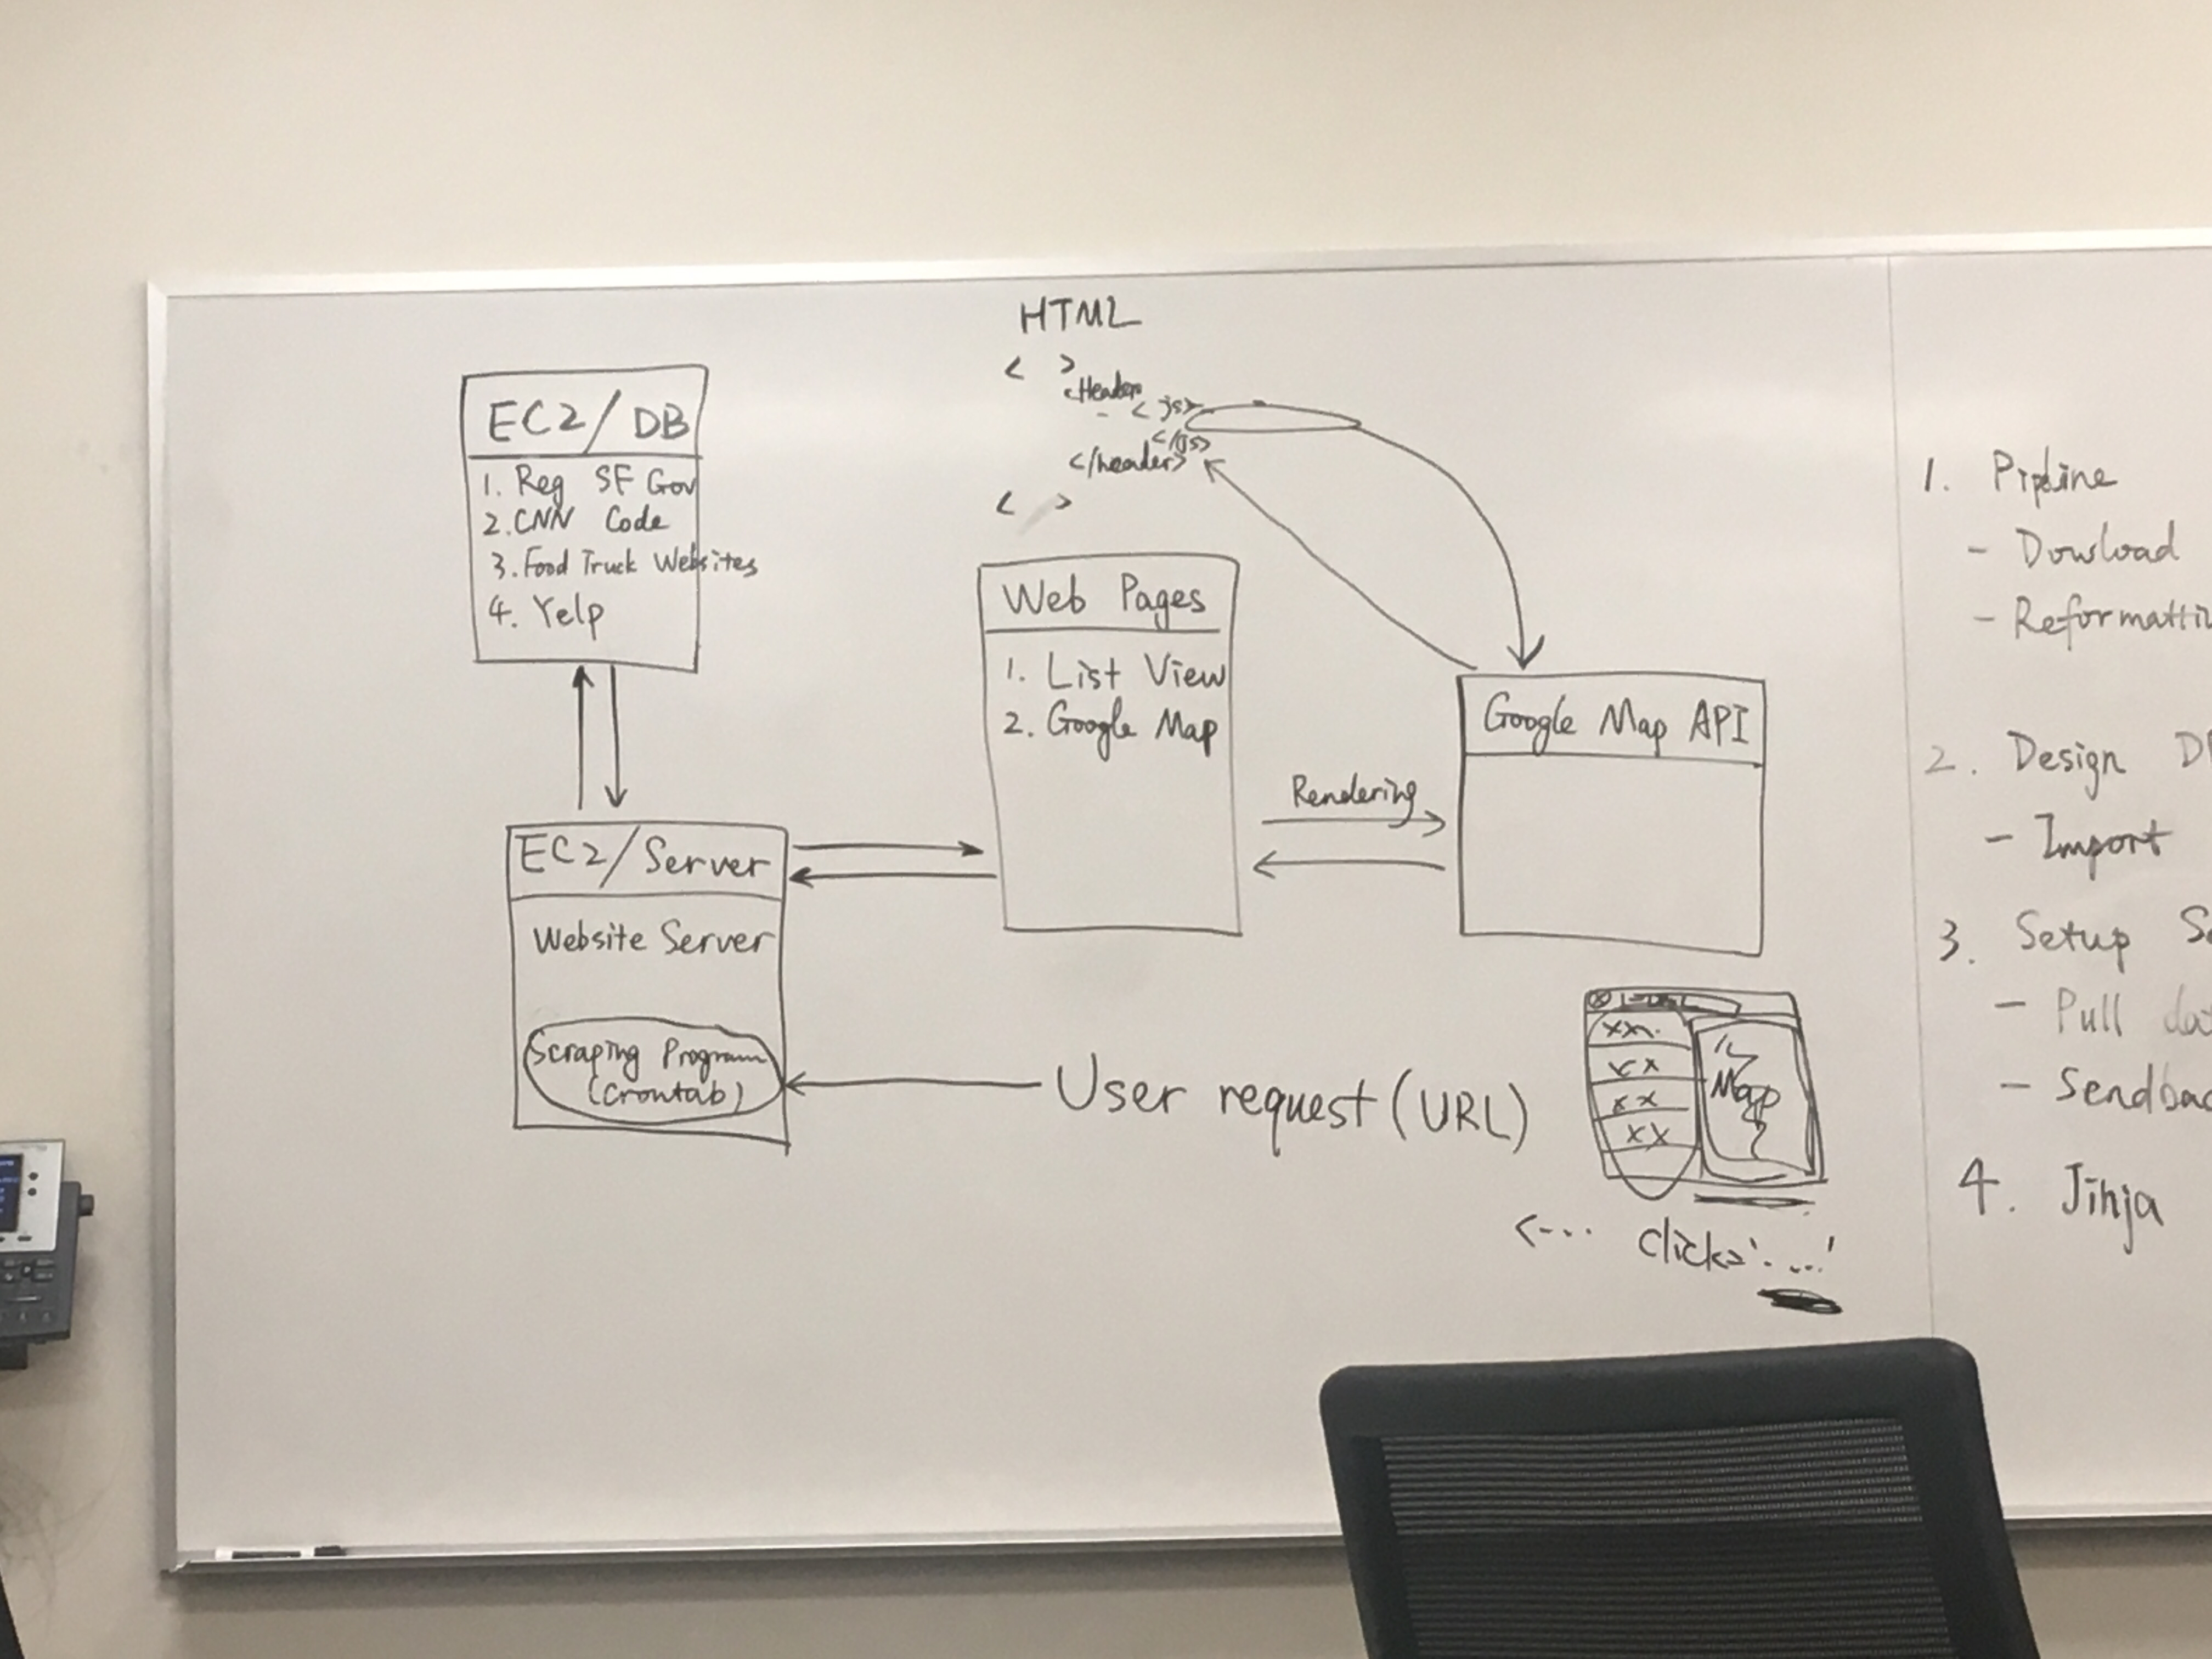 HTML
< >
<Header
- <js>
</js>
</header>
< >
EC2/DB
1. Reg SF Gov
2. CNN Code
3. Food Truck Websites
4. Yelp
Web Pages
1. List View
2. Google Map
Google Map API
Rendering
EC2/Server
Website Server
Scraping Program
(Crontab)
User request (URL)
xx
xx
xx
xx
Map
<--- click='....'
1. Pipline
- Dowload
- Reformatti
2. Design D
- Import
3. Setup S
- Pull da
- Sendba
4. Jinja